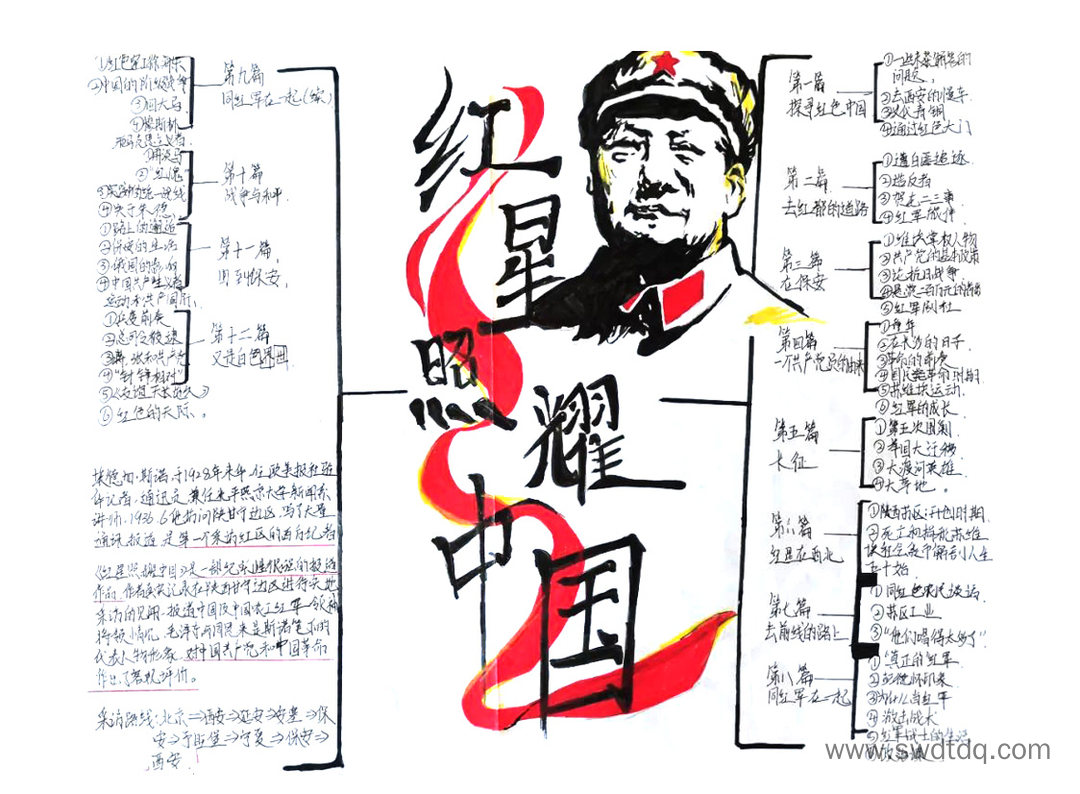 红星照耀中国
第一篇
探寻红色中国
①一些未获解答的
问题
②去西安的慢车
③汉代青铜
④通过红色大门
第二篇
去红都的道路
①遭白匪追逐
②造反者
③贺龙二三事
④红军旅伴
第三篇
在保安
①维埃掌权人物
②共产党的基本政策
③论抗日战争
⑤红军剧社
第四篇
一个共产党员的由来
①童年
②在长沙的日子
③革命的前奏
④国民革命时期
⑤苏维埃运动
⑥红军的成长
第五篇
长征
①第五次围剿
②举国大迁移
③大渡河英雄
④大草地。
第六篇
红星在西北
①陕西苏区:开创时期
②死亡和
第七篇
去前线的路上
①同红色农民谈话
②苏区工业
③“他们唱得太多了”
第八篇
同红军在一起
①真正的红军
②彭德怀印象
③为什么当红军
④游击战术
⑤红军战士的生活
第九篇
同红军在一起(续)
②中国的阶级战争
③四大马
④穆斯林
第十篇
战争与和平
②“红小鬼”
③实践中的统一战线
④关于朱德
第十一篇
回到保安
①路上的邂逅
②保安的生活
③俄国的影响
④中国共产主义者
运动和共产国际
第十二篇
又是白色世界
①兵变前奏
②总司令被逮
③蒋、张和共产党
④“针锋相对”
⑥红色的天际。
埃德加·斯诺,于1928年来华,任欧美报社驻
华记者、通讯员,兼任北平燕京大学新闻系
讲师,1936.6他访问陕甘宁边区,写了大量
通讯报道,是第一个采访红区的西方记者
《红星照耀中国》是一部纪实性很强的报道
作品,作者真实记录在陕西甘宁边区进行实地
采访的见闻,报道中国及中国工农红军
将领情况,毛泽东和周恩来是斯诺笔下的
代表人物形象,对中国共产党和中国革命
作出了客观评价。
采访路线:北京⇒西安⇒延安⇒安塞⇒保
安⇒予旺堡⇒宁夏⇒保安⇒
西安
www.swdtdq.com